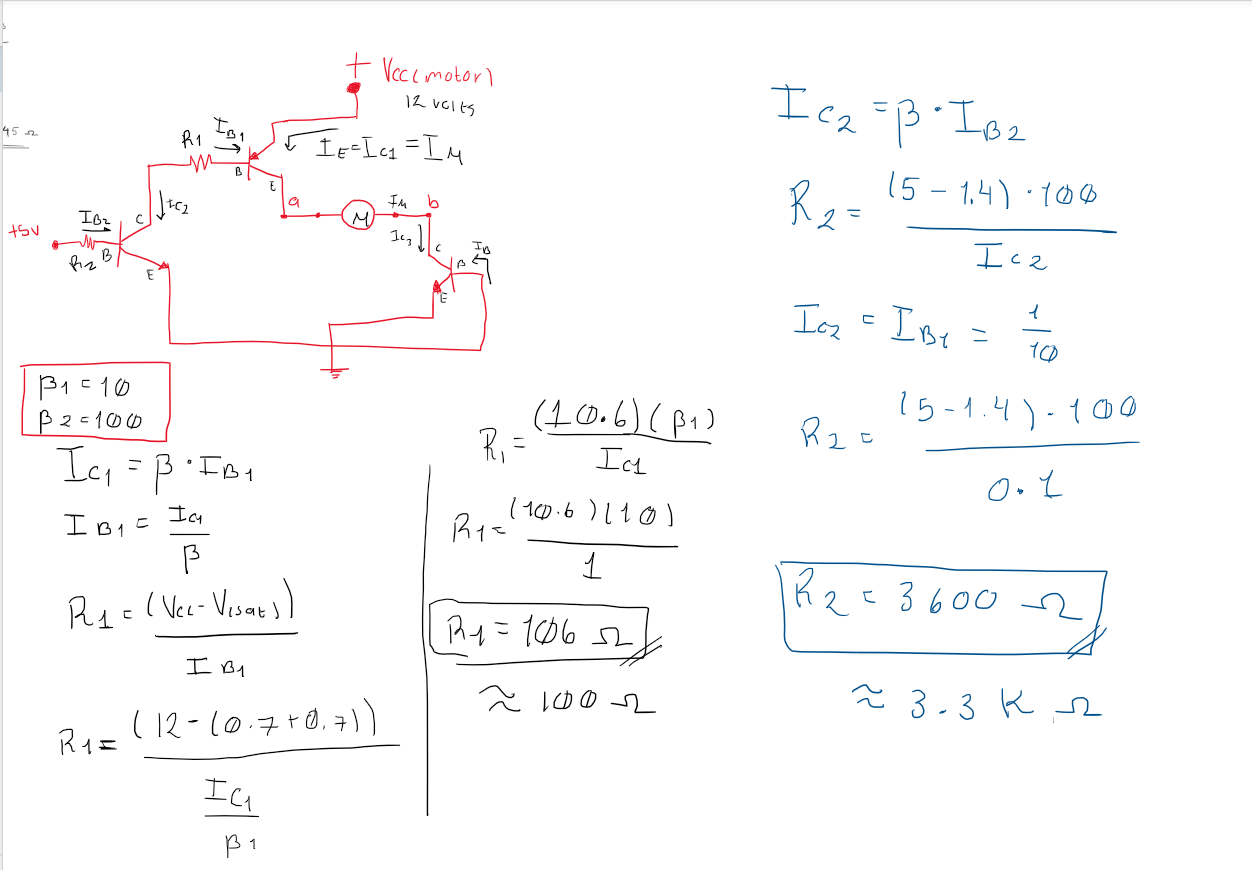 45 Ω
+ Vcc(motor)
12 volts
R1
IB1
IE=IC1=IM
B
E
IC2
a
IM
b
M
IB2
C
+5V
R2
B
E
IC3
C
B
IB
E
β1=10
β2=100
IC1 = β·IB1
IB1 = IC1/β
R1=(Vcc-V(sat))/IB1
R1=(12-(0.7+0.7))/(IC1/β1)
R1=(10.6)(β1)/IC1
R1=(10.6)(10)/1
R1=106 Ω
≈ 100 Ω
IC2 = β·IB2
R2=(5-1.4)·100/IC2
IC2 = IB1 = 1/10
R2=(5-1.4)·100/0.1
R2=3600 Ω
≈ 3.3 K Ω